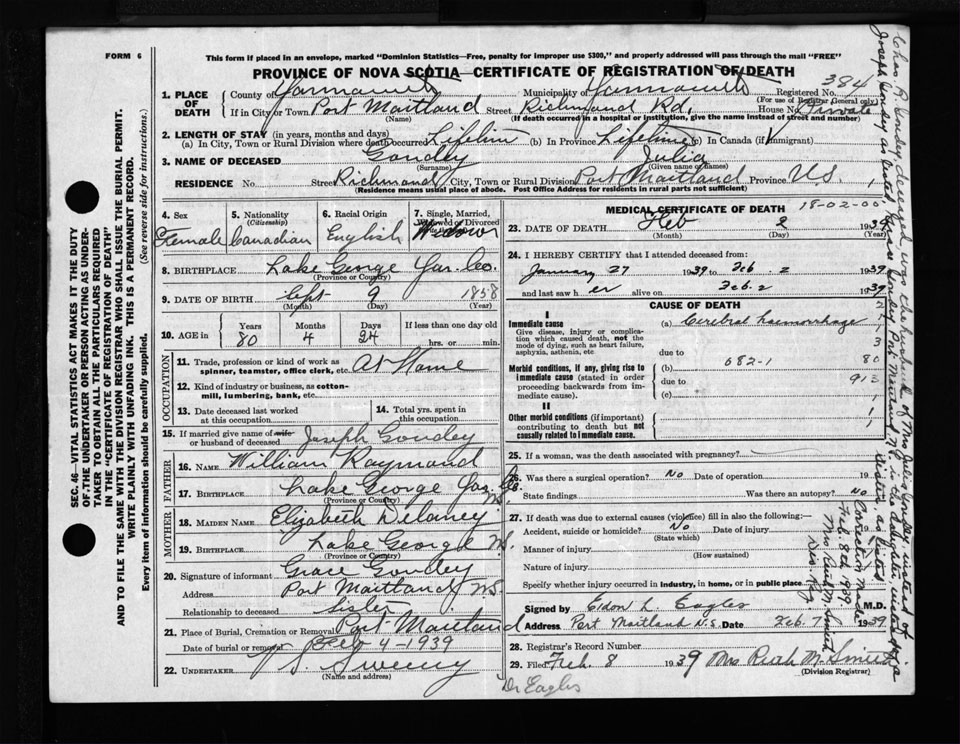 FORM 6
This form if placed in an envelope, marked "Dominion Statistics—Free, penalty for improper use $300," and properly addressed will pass through the mail "FREE"
PROVINCE OF NOVA SCOTIA—CERTIFICATE OF REGISTRATION OF DEATH
384
1. PLACE OF DEATH County of Yarmouth Municipality of Yarmouth Registered No.
(For use of Registrar General only)
If in City or Town Port Maitland Street Richmond Rd. House No. Private
(Name) (If death occurred in a hospital or institution, give the name instead of street and number)
2. LENGTH OF STAY (in years, months and days)
(a) In City, Town or Rural Division where death occurred Lifetime (b) In Province Lifetime (c) In Canada (if immigrant)
3. NAME OF DECEASED Goudey Julia
(Surname) (Given name or names)
RESIDENCE No. Street Richmond City, Town or Rural Division Port Maitland Province N.S.
(Residence means usual place of abode. Post Office Address for residents in rural parts not sufficient)
4. Sex Female
5. Nationality (Citizenship) Canadian
6. Racial Origin English
7. Single, Married, Widowed or Divorced Widow
8. BIRTHPLACE Lake George Yar. Co.
(Province or Country)
9. DATE OF BIRTH Sept 9 1858
(Month) (Day) (Year)
10. AGE in Years Months Days If less than one day old
80 4 24 hrs. or min.
OCCUPATION
11. Trade, profession or kind of work as spinner, teamster, office clerk, etc. At Home
12. Kind of industry or business, as cotton-mill, lumbering, bank, etc.
13. Date deceased last worked at this occupation
14. Total yrs. spent in this occupation
15. If married give name of wife or husband of deceased Joseph Goudey
FATHER
16. NAME William Raymond
17. BIRTHPLACE Lake George Yar. Co. N.S.
(Province or Country)
MOTHER
18. MAIDEN NAME Elizabeth Delaney
19. BIRTHPLACE Lake George N.S.
(Province or Country)
20. Signature of informant Grace Goudey
Address Port Maitland N.S.
Relationship to deceased Sister
21. Place of Burial, Cremation or Removal Port Maitland
Date of burial or removal Feb 4-1939
22. UNDERTAKER V. S. Sweeny
(Name and address)
MEDICAL CERTIFICATE OF DEATH 18-02-00
23. DATE OF DEATH Feb 2 1939
(Month) (Day) (Year)
24. I HEREBY CERTIFY that I attended deceased from:
January 27 1939 to Feb. 2 1939
and last saw her alive on Feb. 2 1939
CAUSE OF DEATH
I
Immediate cause (a) Cerebral haemorrhage
Give disease, injury or complication which caused death, not the mode of dying, such as heart failure, asphyxia, asthenia, etc
due to
Morbid conditions, if any, giving rise to immediate cause (stated in order proceeding backwards from immediate cause).
(b) 682-1 80
due to 913
(c)
II
Other morbid conditions (if important) contributing to death but not causally related to immediate cause.
25. If a woman, was the death associated with pregnancy?
26. Was there a surgical operation? No Date of operation 19
State findings Was there an autopsy? No
27. If death was due to external causes (violence) fill in also the following:—
Accident, suicide or homicide? No Date of injury
(State which)
Manner of injury
(How sustained)
Nature of injury
Specify whether injury occurred in industry, in home, or in public place.
Signed by Eldon L Eagles M.D.
Address Port Maitland N.S. Date Feb. 7 1939
28. Registrar's Record Number
29. Filed Feb. 8 1939 Mrs Ruth M. Smith
(Division Registrar)
Dr Eagles
SEC. 46—VITAL STATISTICS ACT MAKES IT THE DUTY
OF THE UNDERTAKER OR PERSON ACTING AS UNDERTAKER TO OBTAIN ALL THE PARTICULARS REQUIRED
IN THE "CERTIFICATE OF REGISTRATION OF DEATH"
AND TO FILE THE SAME WITH THE DIVISION REGISTRAR WHO SHALL ISSUE THE BURIAL PERMIT.
WRITE PLAINLY WITH UNFADING INK. THIS IS A PERMANENT RECORD.
Every item of information should be carefully supplied. (See reverse side for instructions.)
Chas R. Goudey deceased was the husband of Mrs Julia Goudey instead of
Joseph Goudey as stated. Grace Goudey Port Maitland N.S. is the daughter instead of
sister, as listed
Correction made
Feb. 8th 1939
Mrs Ruth M. Smith
Div. Reg.